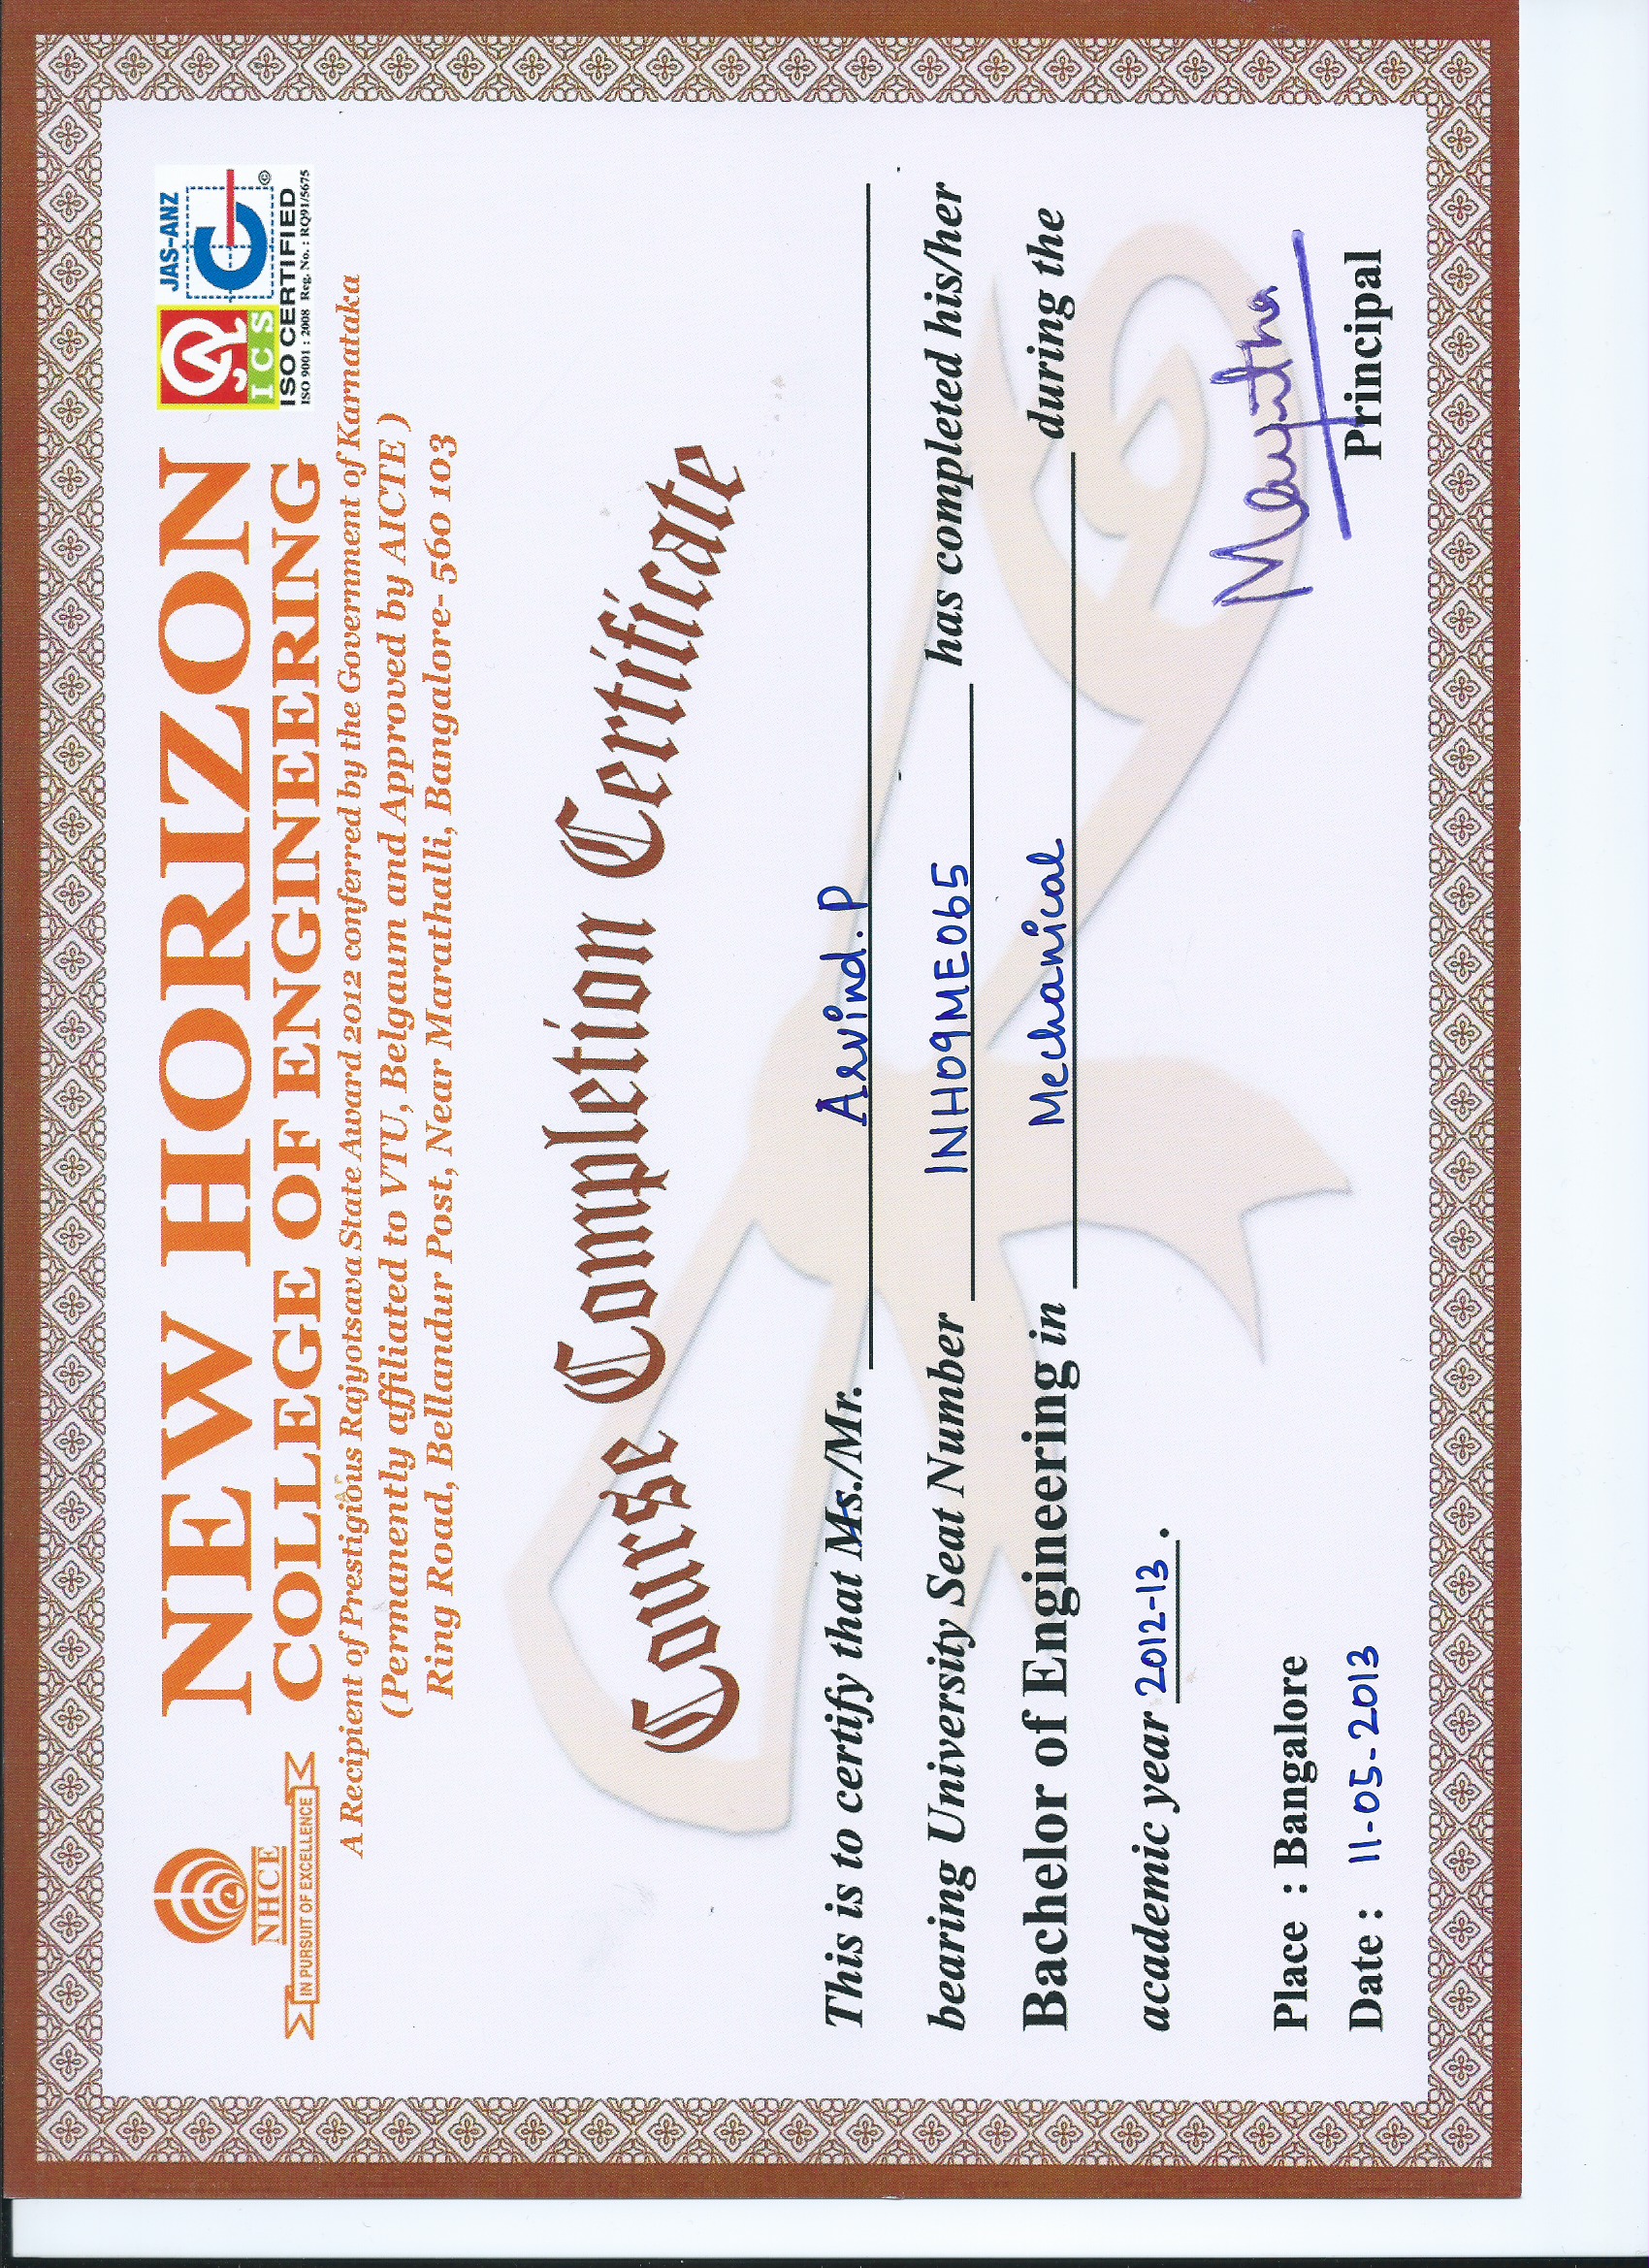 NHCE
IN PURSUIT OF EXCELLENCE
NEW HORIZON
COLLEGE OF ENGINEERING
ICS
JAS-ANZ
©
ISO CERTIFIED
ISO 9001 : 2008 Reg. No. : RQ91/5675
A Recipient of Prestigious Rajyotsava State Award 2012 conferred by the Government of Karnataka
(Permanently affiliated to VTU, Belgaum and Approved by AICTE )
Ring Road, Bellandur Post, Near Marathalli, Bangalore- 560 103
Course Completion Certificate
This is to certify that Ms./Mr. Arvind. P
bearing University Seat Number 1NH09ME065 has completed his/her
Bachelor of Engineering in Mechanical during the
academic year 2012-13 .
Place : Bangalore
Date : 11-05-2013
Principal